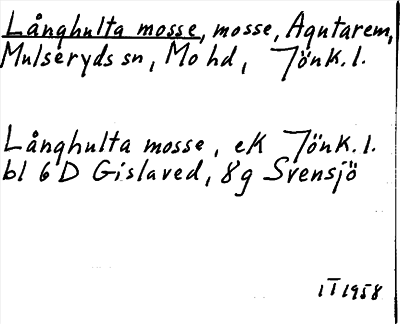 Långhulta mosse, mosse, Agutarem,
Mulseryds sn, Mo hd, Jönk. l.
Långhulta mosse, ek Jönk. l.
bl 6 D Gislaved, 8g Svensjö
1 I 1958